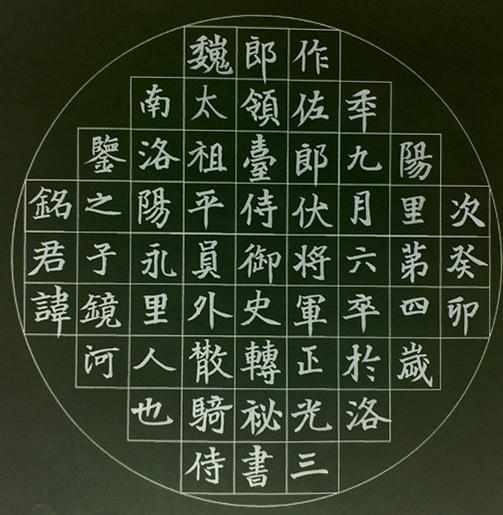 銘君諱
鑒之子鏡河
南洛陽永里人也
魏太祖平員外散騎侍
郎領臺侍御史轉祕書
作佐郎伏将軍正光三
秊九月六卒於洛
陽里第四歲
次癸卯